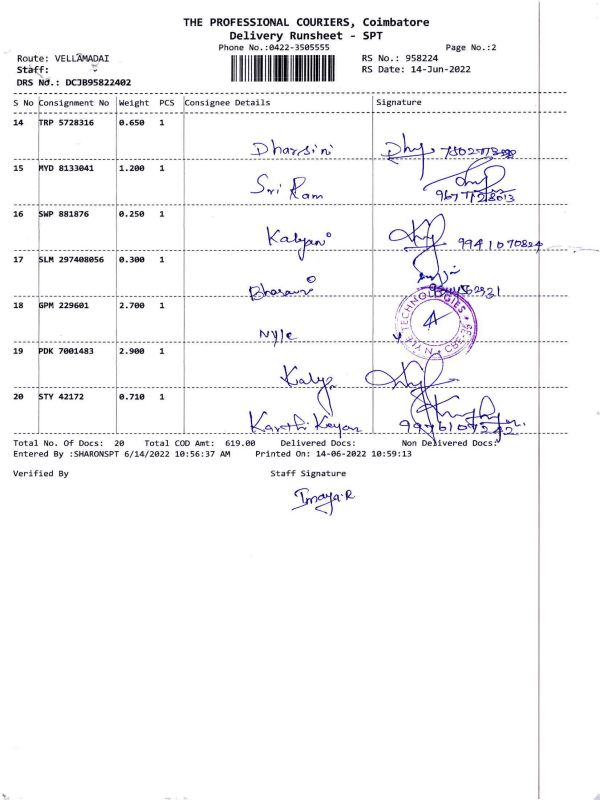 THE PROFESSIONAL COURIERS, Coimbatore
Delivery Runsheet - SPT
Phone No.:0422-3505555 Page No.:2
Route: VELLAMADAI RS No.: 958224
Staff: RS Date: 14-Jun-2022
DRS No.: DCJB95822402
S No Consignment No Weight PCS Consignee Details Signature
14 TRP 5728316 0.650 1
Dharsini
15 MYD 8133041 1.200 1
Sri Ram
16 SWP 881876 0.250 1
Kalyani 9941070824
17 SLM 297408056 0.300 1
18 GPM 229601 2.700 1
TECHNOLOGIES
NYLE CBE-35
Nyle
19 PDK 7001483 2.900 1
20 STY 42172 0.710 1
Karthi Keyan
Total No. Of Docs: 20 Total COD Amt: 619.00 Delivered Docs: Non Delivered Docs:
Entered By :SHARONSPT 6/14/2022 10:56:37 AM Printed On: 14-06-2022 10:59:13
Verified By Staff Signature
Imaya.R